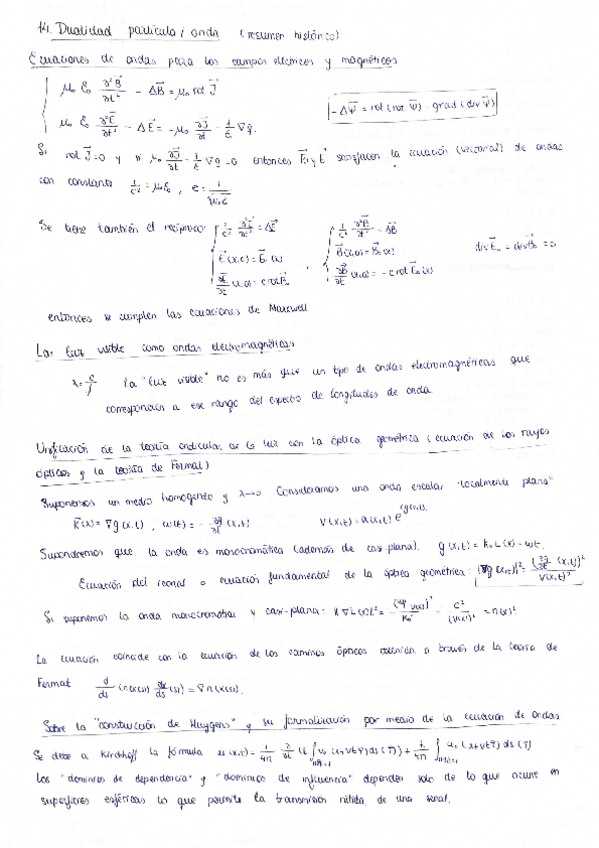 14. Dualidad partícula / onda (resumen histórico)
Ecuaciones de ondas para los campos eléctricos y magnéticos
μ₀ ε₀ ∂²B⃗/∂t² - ΔB⃗ = μ₀ rot J⃗
-Δψ⃗ = rot (rot ψ⃗) - grad (div ψ⃗)
μ₀ ε₀ ∂²E⃗/∂t² - ΔE⃗ = -μ₀ ∂J⃗/∂t - 1/ε ∇q.
Si rot J⃗=0 y si μ₀ ∂J⃗/∂t - 1/ε ∇q = 0 entonces B⃗ y E⃗ satisfacen la ecuación (vectorial) de ondas
con constante 1/c² = μ₀ε₀,
Se tiene también el recíproco: 1/c² ∂²E⃗/∂t² = ΔE⃗
1/c² ∂²B⃗/∂t² = ΔB⃗
div E⃗₀ = div B⃗₀ = 0
E⃗(x,0) = E⃗₀(x)
B⃗(x,0) = B⃗₀(x)
∂E⃗/∂t (x,0) = c rot B⃗₀
∂B⃗/∂t (x,0) = -c rot E⃗₀(x)
entonces se cumplen las ecuaciones de Maxwell
La luz visible como ondas electromagnéticas
λ = c/f La "luz visible" no es más que un tipo de ondas electromagnéticas que
corresponden a ese rango del espectro de longitudes de onda.
Unificación de la teoría ondicular de la luz con la óptica geométrica (ecuación de los rayos
ópticos y la teoría de Fermat)
Suponemos un medio homogéneo y λ→0 Consideramos una onda escalar "localmente plana"
k⃗(x) = ∇g(x,t), ω(t) = - ∂g/∂t (x,t) V(x,t) = a(x,t) e^{ig(x,t)}.
Supondremos que la onda es monocromática (además de casi-plana). g(x,t) = k₀ L(x) - ωt.
Ecuación del iconal o ecuación fundamental de la óptica geométrica: |∇g (x,t)|² = (∂g/∂t (x,t))² / V(x,t)²
Si suponemos la onda monocromática y casi-plana: = c²/(V(x))² = n(x)²
La ecuación coincide con la ecuación de los caminos ópticos obtenida a través de la teoría de
Fermat d/ds (n(x(s)) dx/ds (s)) = ∇n(x(s)).
Sobre la "construcción de Huygens" y su formalización por medio de la ecuación de ondas
Se debe a Kirchhoff la fórmula u(x,t) = 1/4π ∂/∂t (t ∫ u₀ (x+vtγ) ds(γ)) + t/4π ∫ u₁ (x+vtγ) ds(γ)
Los "dominios de dependencia" y "dominios de influencia" dependen solo de lo que ocurre en
superficies esféricas lo que permite la transmisión nítida de una señal.